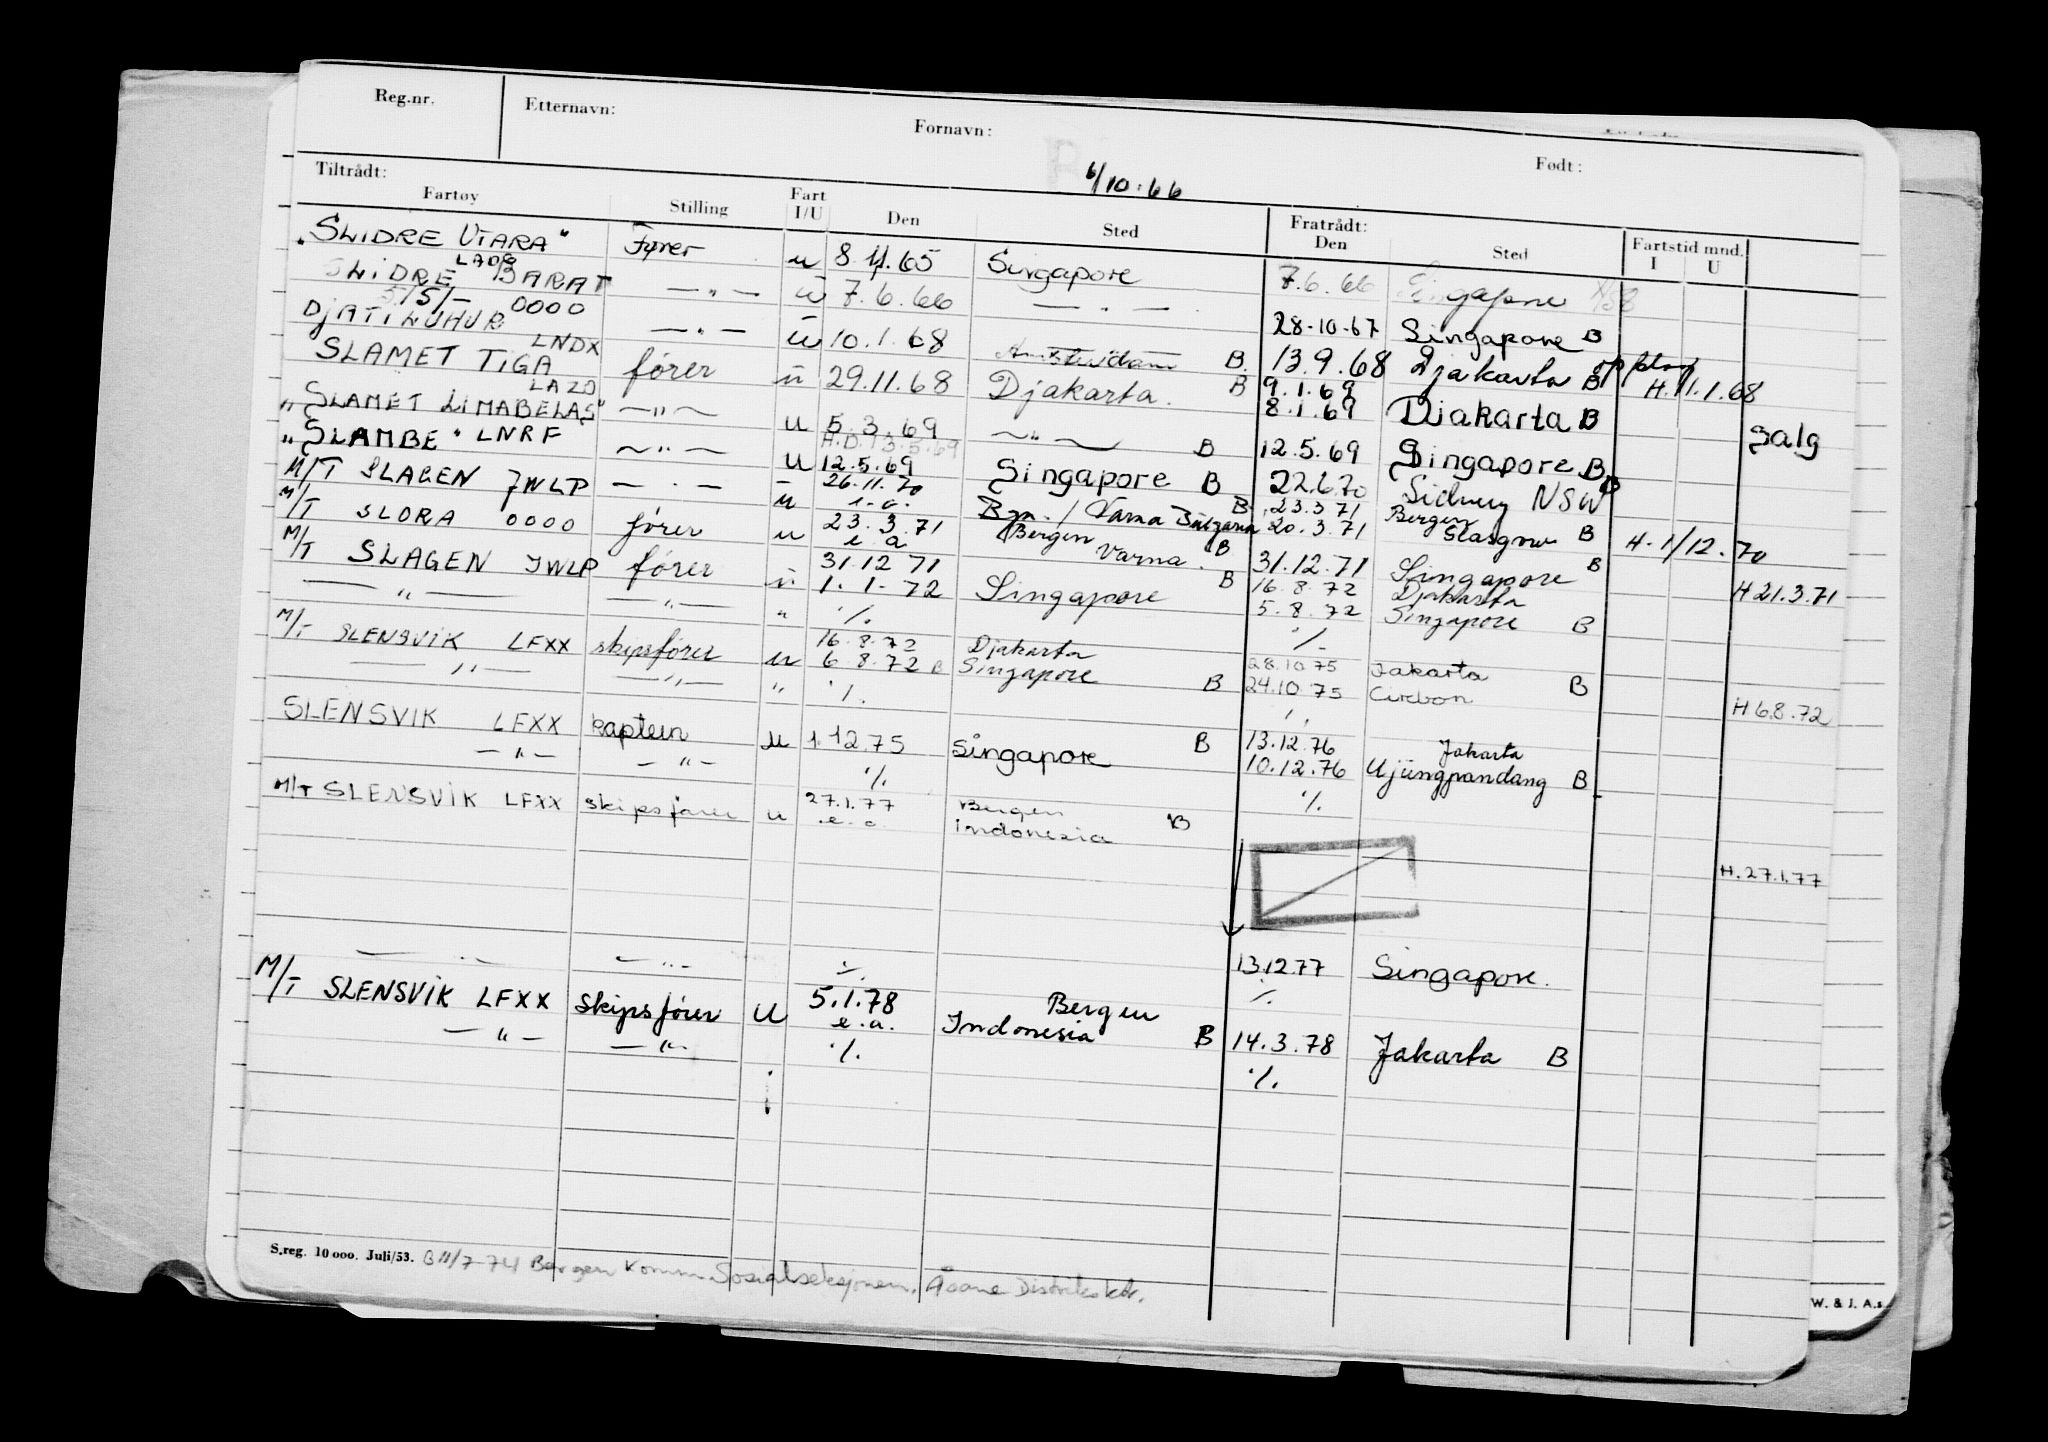 Reg.nr. Etternavn: Fornavn: Født:
6/10.66
Tiltrådt: Fratrådt:
Fartøy Stilling Fart I/U Den Sted Den Sted Fartstid mnd. I U
"SLIDRE UTARA" Fører u 8.11.65 Singapore 7.6.66 Singapore
LADG
SLIDRE BARAT —"— u 7.6.66 —"— 28-10-67 Singapore B
S/S/- 0000
DJATILUHUR —"— u 10.1.68 Amsterdam B. 13.9.68 Djakarta B opplag H.11.1.68
LNDX
SLAMET TIGA fører u 29.11.68 Djakarta. B 9.1.69
8.1.69 Djakarta B salg
LAZO
"SLAMET LIMABELAS" —"— u 5.3.69 —"— B 12.5.69 Singapore B
H.D. 13.5.69
"SLAMBE" LNRF —"— u 12.5.69 Singapore B 22.6.70 Sidney NSW B
M/T SLAGEN JWLP —"— u 26.11.70 Bgn. / Varna Bulgaria B. 23.3.71 Bergen
e.a. 20.3.71 Glasgow B H.1/12.70
M/T SLORA 0000 fører u 23.3.71 Bergen
e a Varna. B 31.12.71 Singapore B H 21.3.71
31.12 71
M/T SLAGEN JWLP fører u 1.1.72 Singapore B 16.8.72 Djakarta
5.8.72 Singapore B
—"— —"— " ./. ./.
M/T SLENSVIK LFXX skipsfører u 16.8.72 Djakarta 28.10.75 Jakarta
6.8.72 B Singapore B 24.10.75 Cirebon B H 6.8.72
—"— —"— " ./. ./.
SLENSVIK LFXX kaptein u 1.12.75 Singapore B 13.12.76 Jakarta
10.12.76 Ujungpandang B
—"— —"— ./. ./.
M/T SLENSVIK LFXX skipsfører u 27.1.77 Bergen
e.a. Indonesia B H.27.1.77
13.12.77 Singapore.
—"— —"— ./. ./.
M/T SLENSVIK LFXX skipsfører u 5.1.78 Bergen
e.a. Indonesia B 14.3.78 Jakarta B
—"— —"— ./. ./.
S.reg. 10 000. Juli/53. B 11/7 74 Bergen Komm. Sosialseksjonen, Åsane Distriktsktr.
W. & J. A.s.